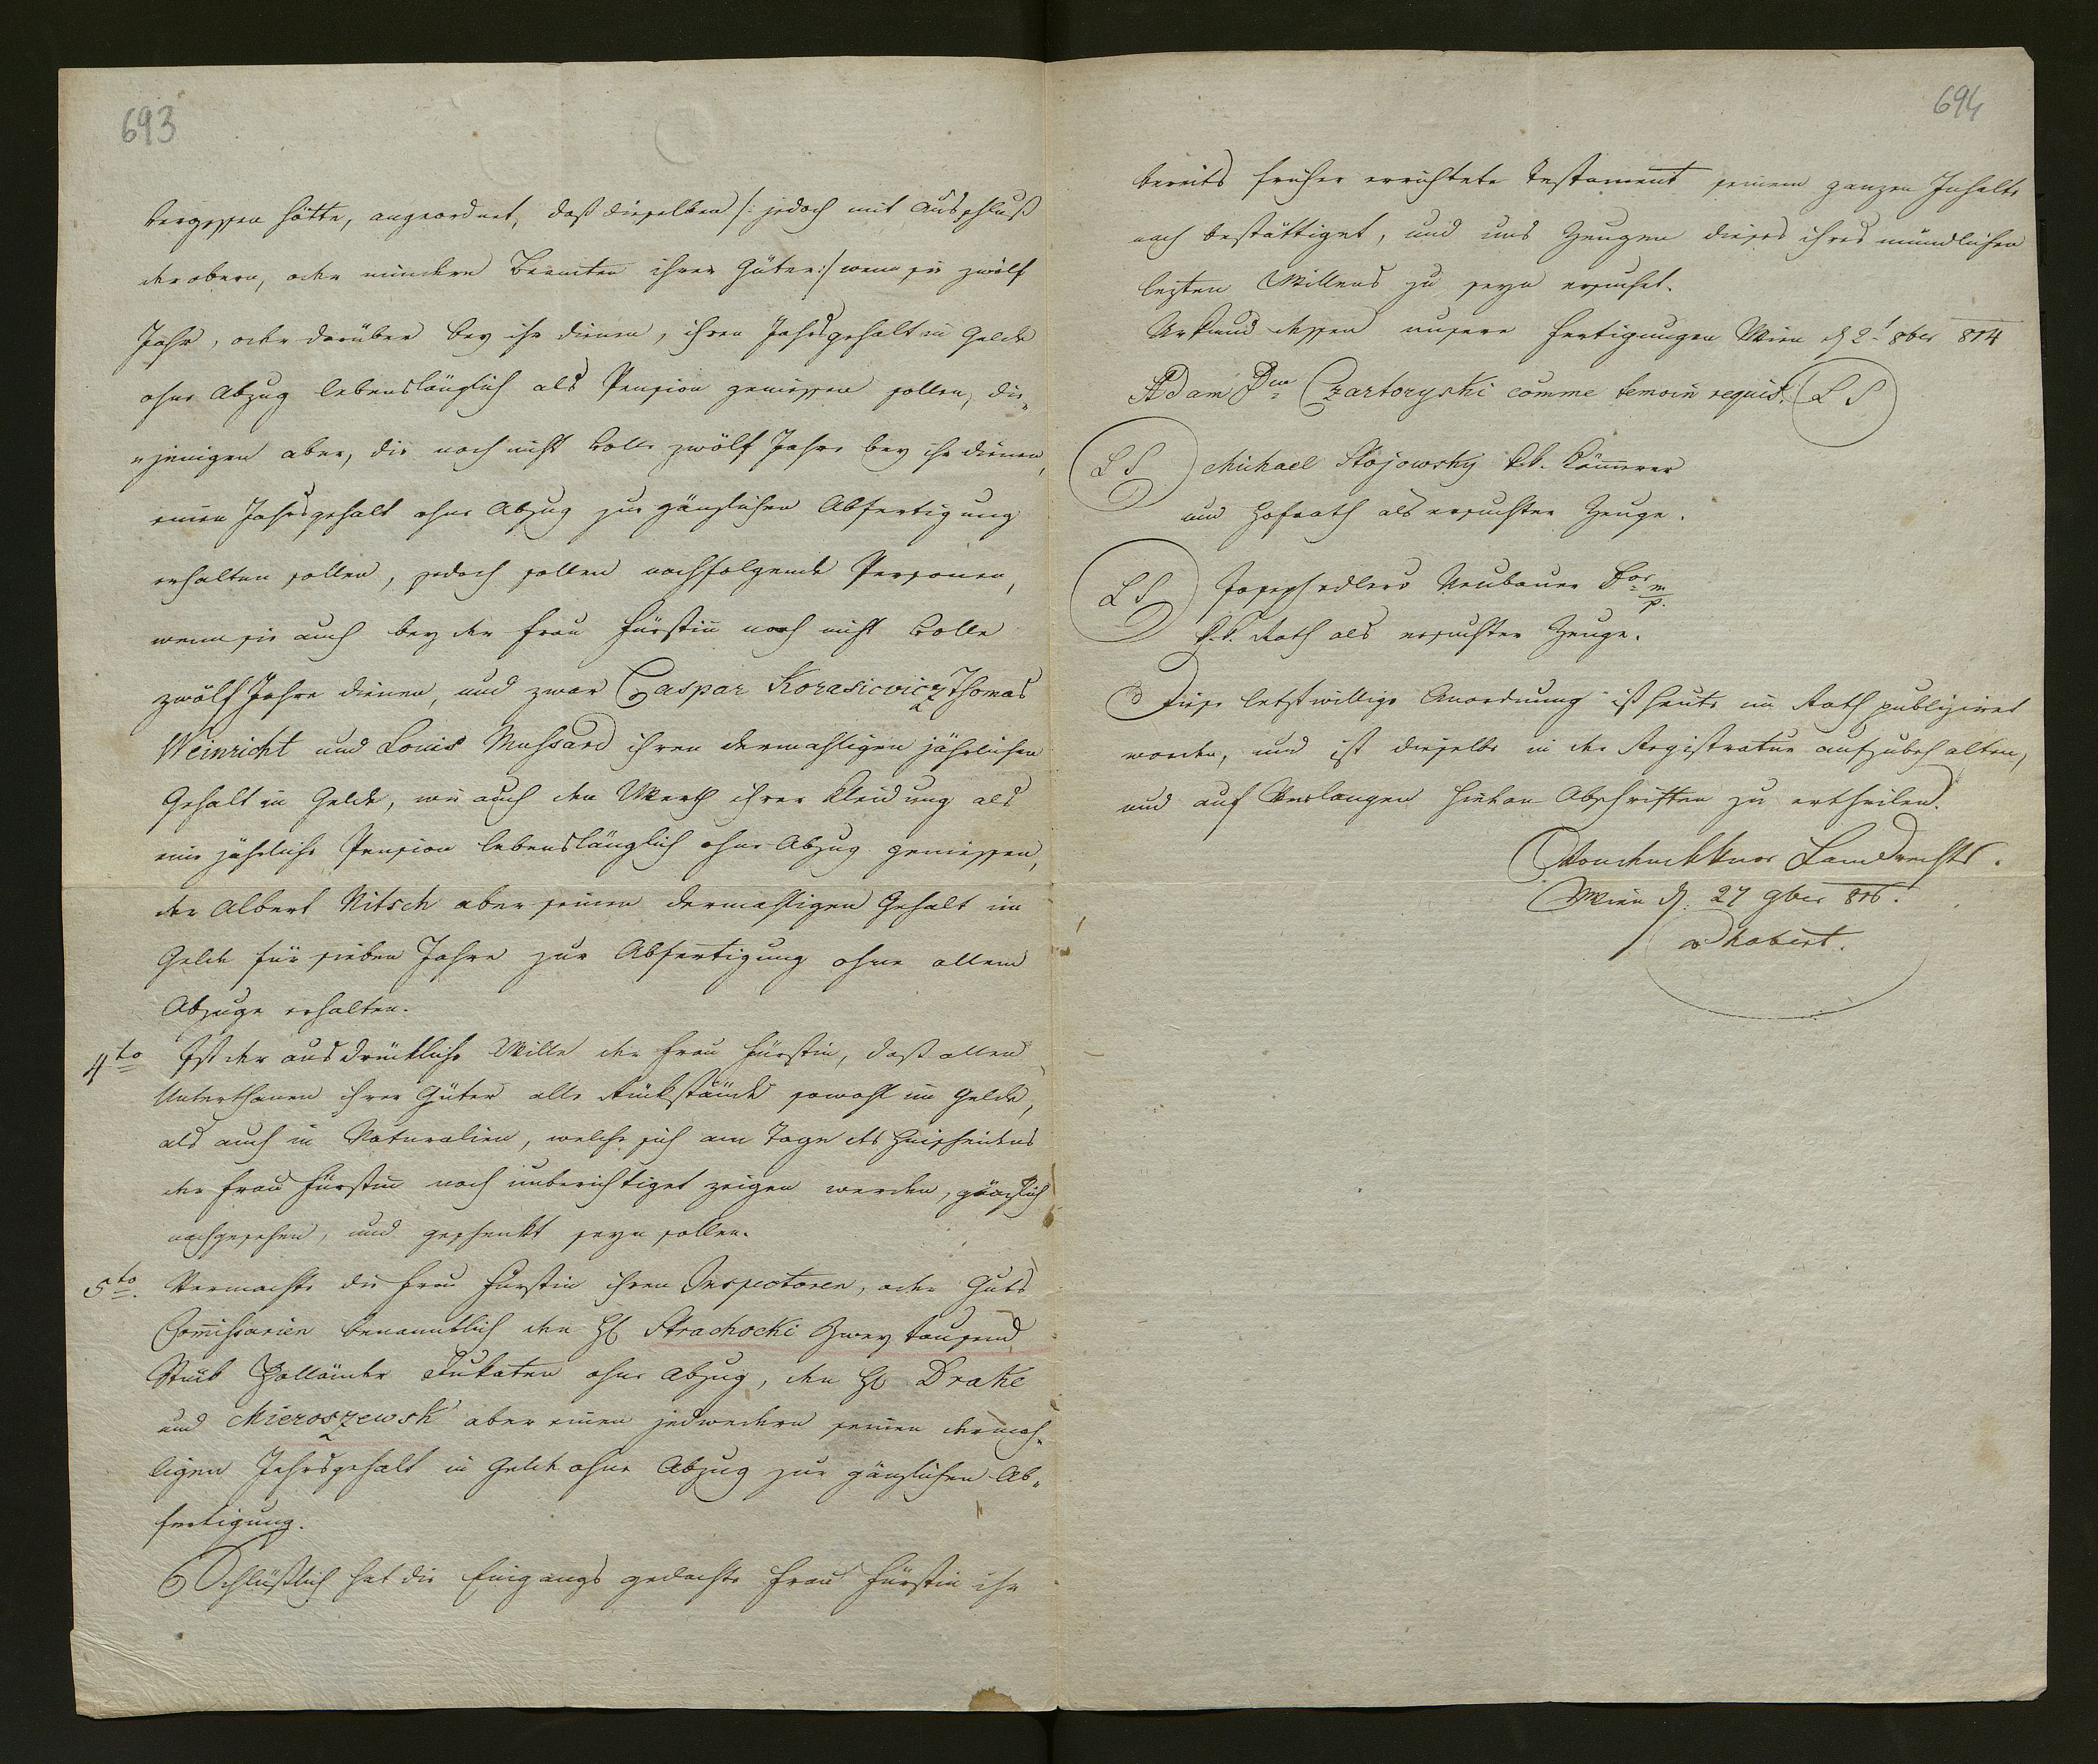 693
vergessen hätte, angeordnet, daß dieselben /: jedoch mit Ausschluß
der obern, oder mindern Beamten ihrer Güter :/ wenn sie zwölf
Jahr, oder darüber bey ihr dienen, ihren Jahrsgehalt in Gelde
ohne Abzug lebenslänglich als Pension geniessen sollen, die„
„jenigen aber, die noch nicht volle zwölf Jahre bey ihr dienen,
einen Jahrsgehalt ohne Abzug zur gänzlichen Abfertigung
erhalten sollen, jedoch sollen nachfolgende Personen,
wenn sie auch bey der Frau Fürstin noch nicht volle
zwölf Jahre dienen, und zwar Caspar Korasicvicz Thomas
Weinricht und Louis Mussard ihren dermahligen jährlichen
Gehalt in Gelde, wie auch den Werth ihrer Kleidung als
eine jährliche Pension lebenslänglich ohne Abzug geniessen,
der Albert Nitsch aber seinen dermahligen Gehalt im
Gelde für sieben Jahre zur Abfertigung ohne allem
Abzuge erhalten.
4to Ist der ausdrückliche Wille der Frau Fürstin, daß allen
Unterthanen ihrer Güter alle Rückstände sowohl im Gelde,
als auch in Naturalien, welche sich am Tage des Hinscheidens
der Frau Fürstin noch unberichtiget zeigen werden, gänzlich
nachgesehen, und geschenkt seyn sollen.
5to. Vermachte die Frau Fürstin ihren Inspectoren, oder Guts
Commissarien benanntlich den H Strachocki Zwey tausend
Stück Holländer Dukaten ohne Abzug, den H Drake
und Mieroszewsk aber einen jedwedern seinen dermah„
ligen Jahrsgehalt in Gelde ohne Abzug zur gänzlichen Ab„
fertigung.
Schlüßlich hat die Eingangs gedachte Frau Fürstin ihr
694
bereits früher errichtete Testament seinem ganzen Inhalte
nach bestättiget, und uns Zeugen dieses ihres mündlichen
lezten Willens zu seyn ersuchet.
Urkund dessen unsere Fertigungen Wien d 2t 8ber 814
Adam Pce Czartoryski comme temoin requis. L S
L S Michael Stojowsky k.k. Kämmerer
und Hofrath als ersuchter Zeuge.
L S Joseph edler v Neubauer mp.
k.k. Rath als ersuchter Zeuge.
Diese letztwillige Anordnung ist heute im Rath publizirt
worden, und ist dieselbe in der Registratur aufzubehalten,
und auf Verlangen hievon Abschriften zu ertheilen.
Von den kk nö Landrechts.
Wien d. 27 9ber 816.